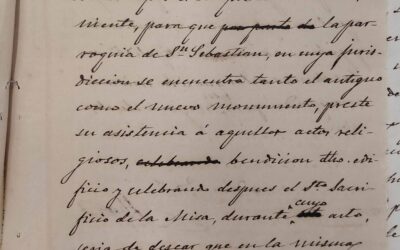 niente, para que por parte de la par-
roquia de Sn. Sebastian, en cuya juris-
diccion se encuentra tanto el antiguo
como el nuevo monumento, preste
su asistencia á aquellos actos reli-
giosos, celebrando bendicion dho. edi-
ficio y celebrando despues el Sto. Sacri-
ficio de la Misa, durante cuyo acto,
seria de desear que en la misma